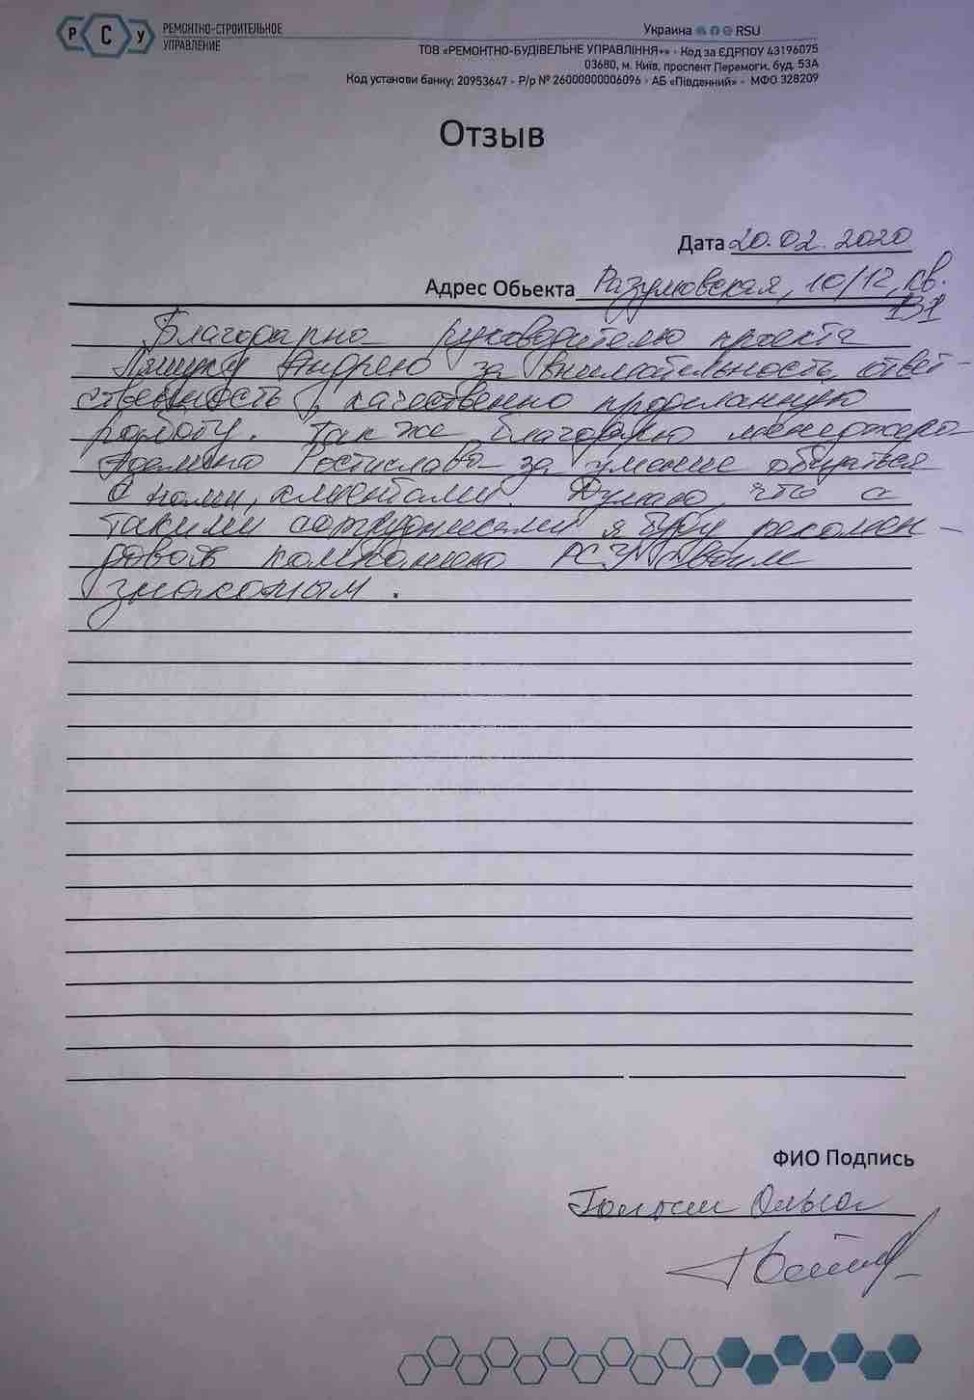 РСУ РЕМОНТНО-СТРОИТЕЛЬНОЕ
УПРАВЛЕНИЕ
Украина RSU
ТОВ «РЕМОНТНО-БУДІВЕЛЬНЕ УПРАВЛІННЯ+» - Код за ЄДРПОУ 43196075
03680, м. Київ, проспект Перемоги, буд. 53А
Код установи банку: 20953647 - Р/р № 26000000006096 - АБ «Південний» - МФО 328209
Отзыв
Дата 20.02.2020
Адрес Обьекта Разумовская, 10/12, кв.
131
Благодарна руководителю проекта
Андрею за внимательность, ответ-
ственность, качественно проделанную
работу. Также благодарю менеджера
Ростислава за умение общаться
с нами, клиентами. Думаю, что с
такими сотрудниками я буду рекомен-
довать компанию РСУ своим
знакомым.
ФИО Подпись
Ольга